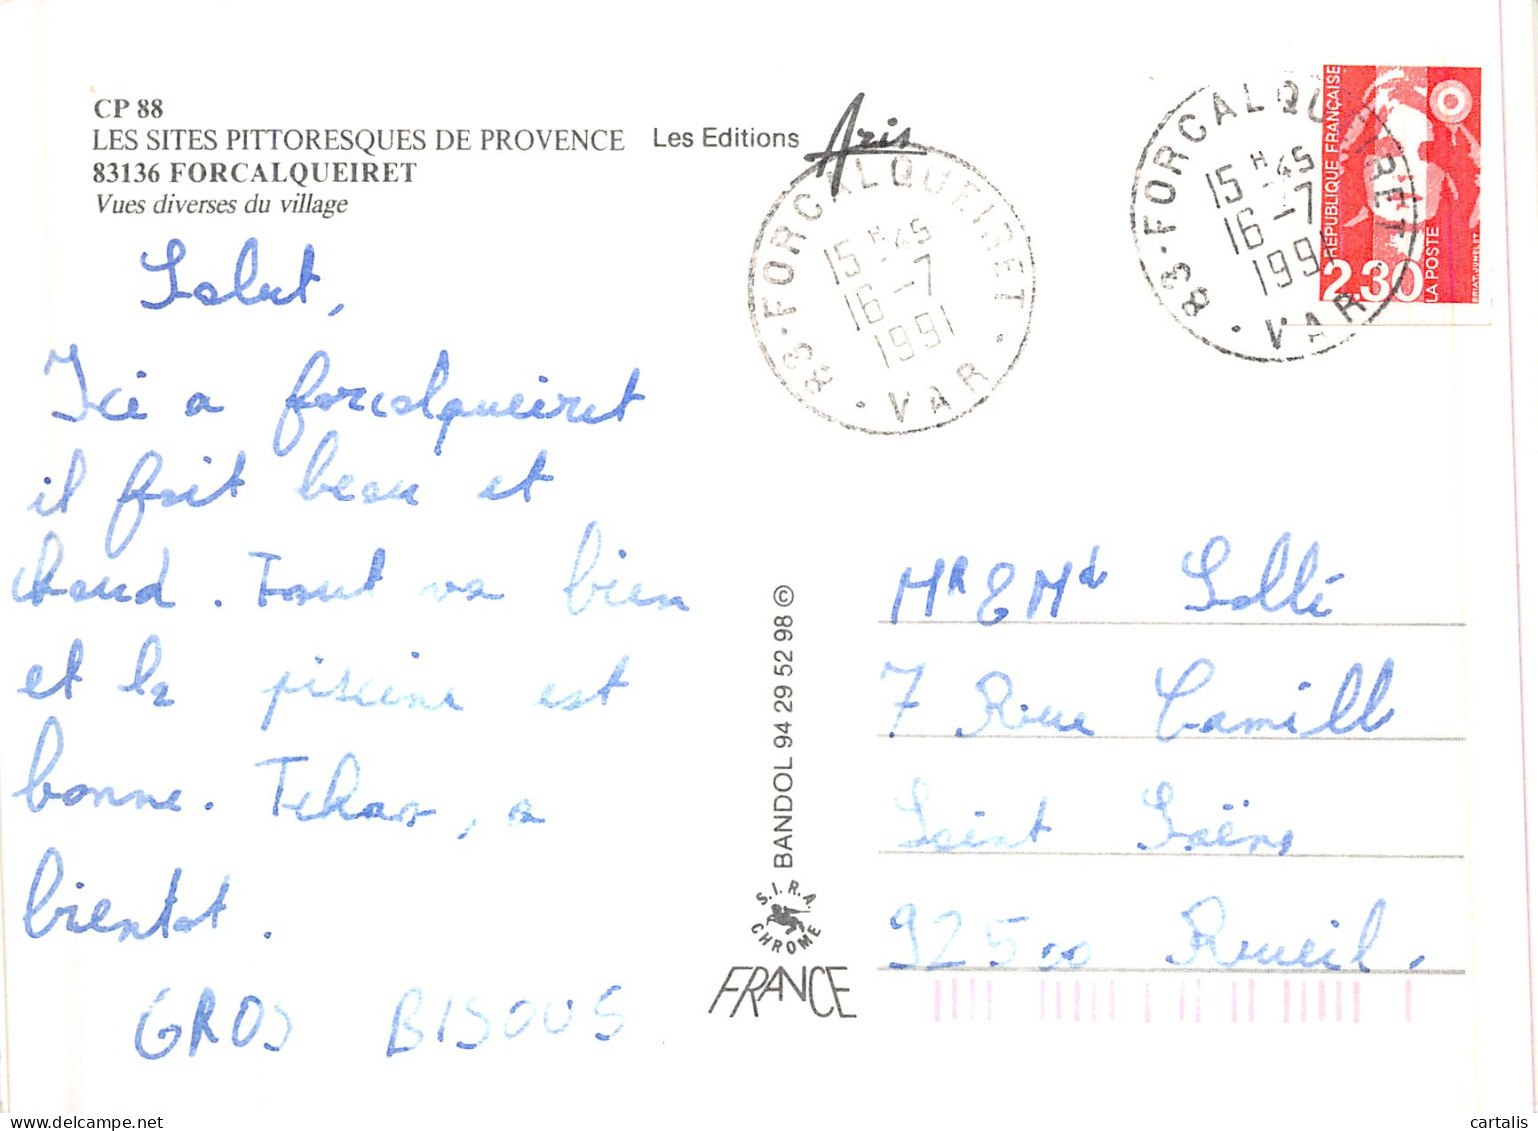 CP 88
LES SITES PITTORESQUES DE PROVENCE
83136 FORCALQUEIRET
Vues diverses du village
Les Editions Aris
83 - FORCALQUEIRET
15 H 45
16 - 7
1991
· VAR ·
83 - FORCALQUEIRET
15 H 45
16 - 7
1991
· VAR ·
REPUBLIQUE FRANÇAISE
2.30
LA POSTE
BRIAT-JUMELET
Salut,
Ici a forcalqueiret
il fait beau et
chaud. Tout va bien
et la piscine est
bonne. Tchao, a
bientot.
GROS BISOUS
BANDOL 94 29 52 98 ©
S.I.R.A.
CHROME
FRANCE
MR & Md
7 Rue Camille
Saint Saëns
92500 Rueil.
cartalis